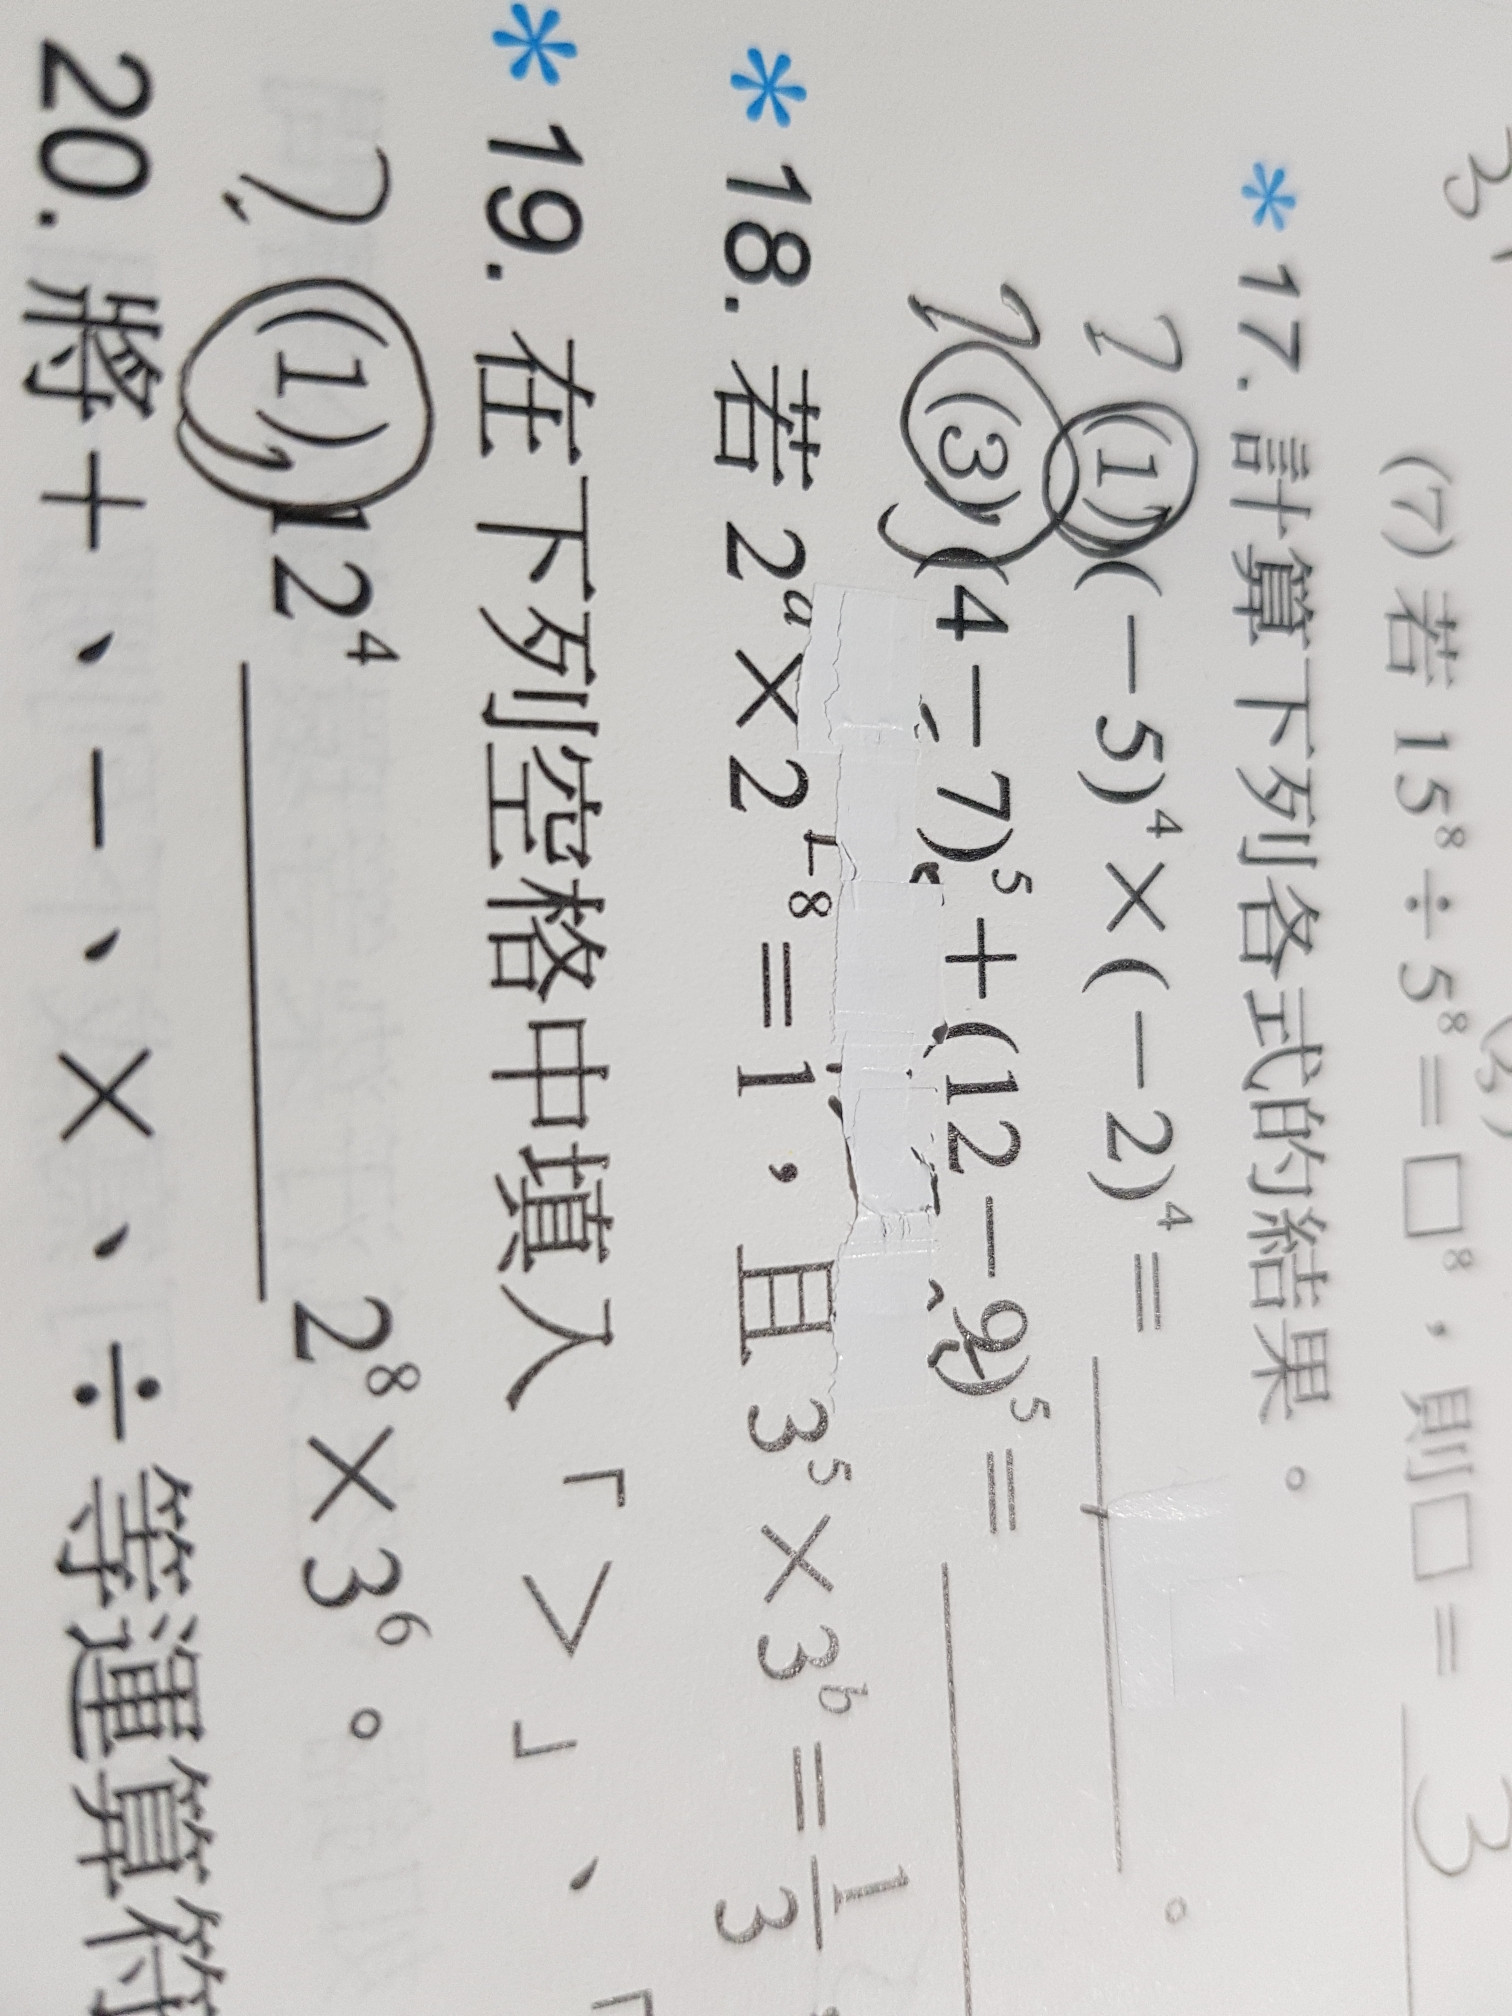 (7) 若 15⁸÷5⁸=□⁸,則□= 3
*17. 計算下列各式的結果。
? (1) (-5)⁴×(-2)⁴= 。
? (3) (4-7)⁵+(12-9)⁵=
*18. 若 2ᵃ×2⁻⁸=1,且 3⁵×3ᵇ=1/3
*19. 在下列空格中填入「>」、「
? (1) 12⁴ 2⁸×3⁶。
20. 將+、-、×、÷等運算符